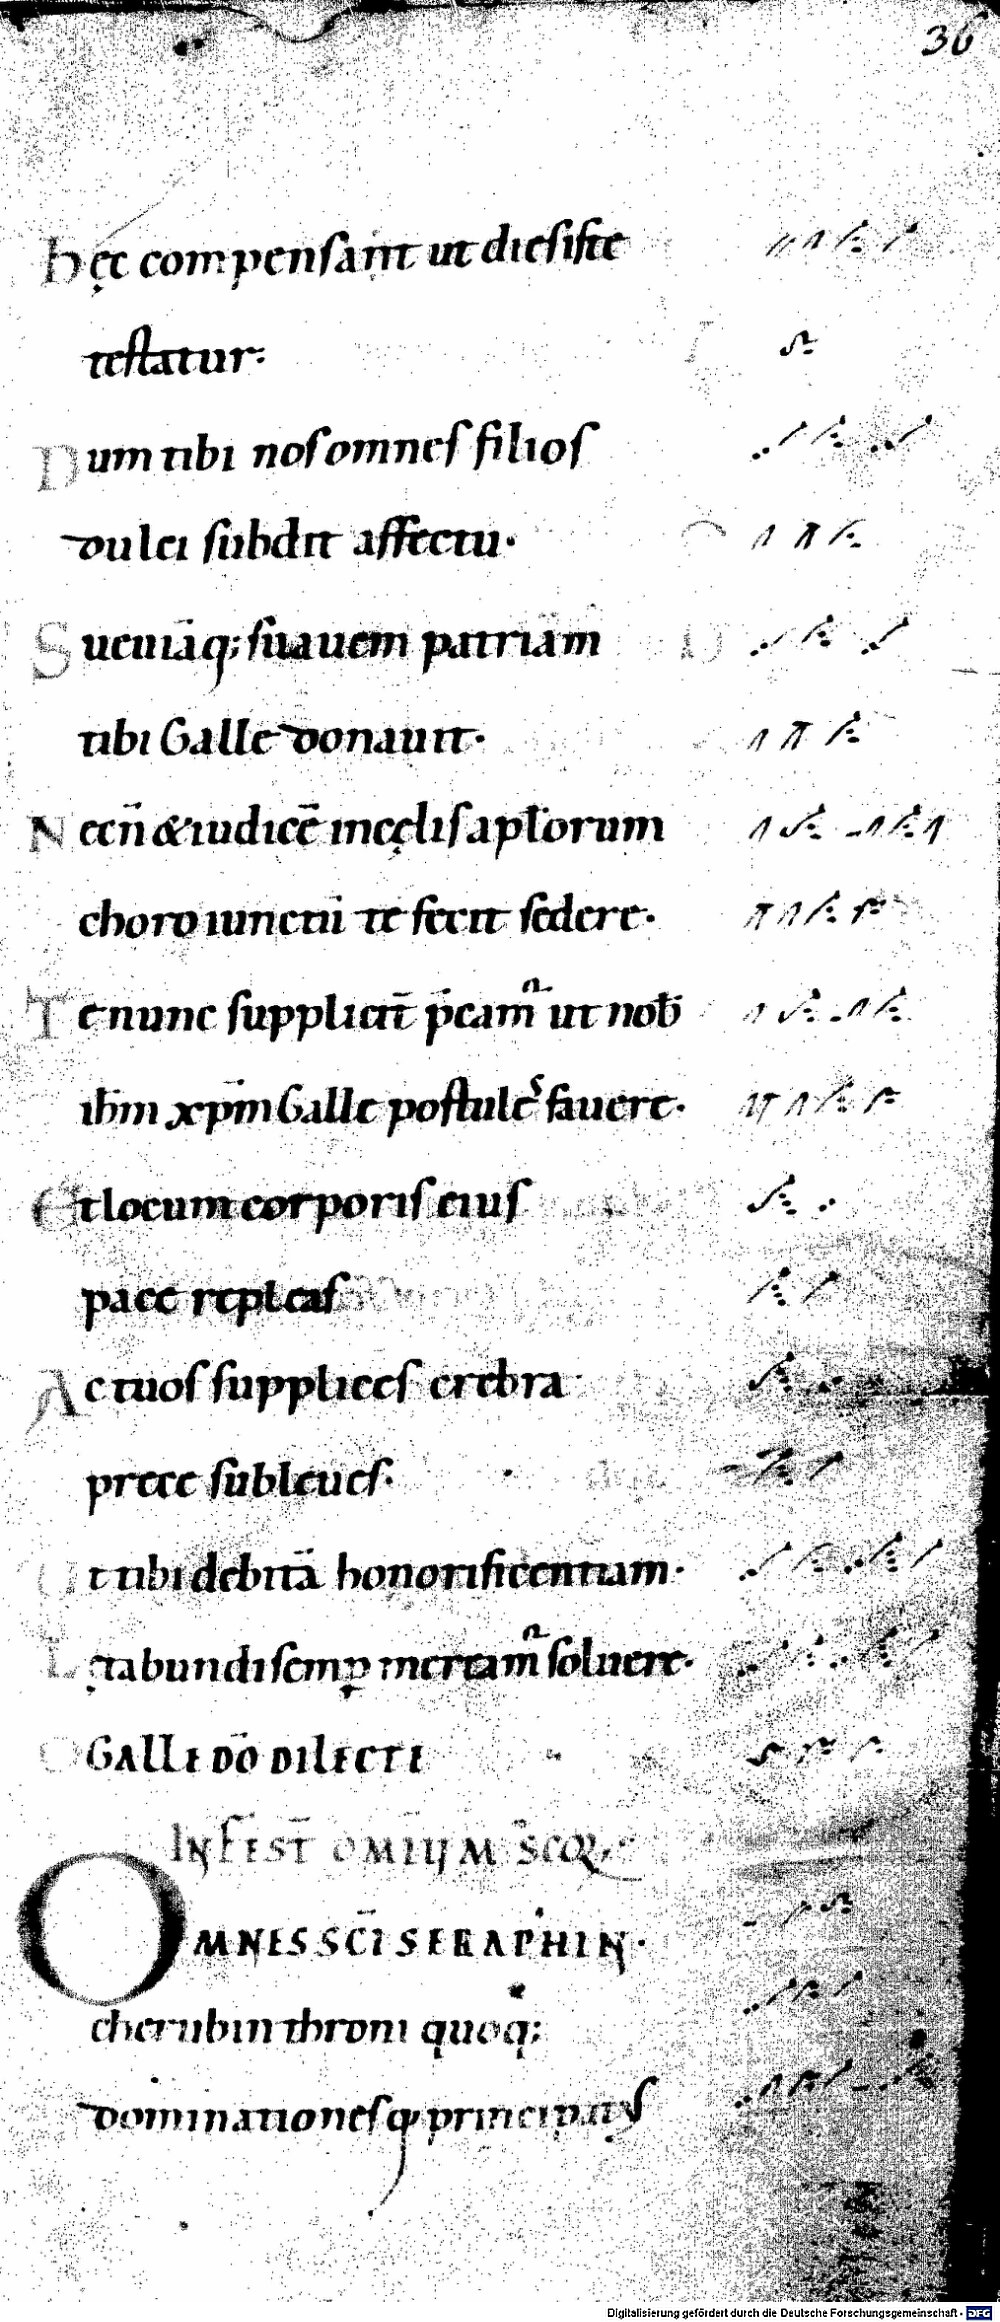 36
Hęc compensant ut dies iste
testatur:
Dum tibi nos omnes filios
dulci subdit affectu·
Sueuiāq; suauem patriam
tibi Galle donauit·
Necn̄ & iudicē in cęlis apl̄orum
choro iunctū te fecit sedere·
Te nunc supplicit̄ p̄cam̄ ut nob̄
ih̄m xp̄m Galle postules fauere·
Et locum corporis eius
pace repleas
Ac tuos supplices crebra
prece subleues·
Ut tibi debitā honorificentiam·
Lętabundi semꝑ meream̄ soluere·
O GALLE DŌ DILECTE
IN FEST̄ OMIUM S̄COꝜ
OMNES SC̄I SERAPHIN·
cherubin throni quoq;
dominationesq; principatus
Digitalisierung gefördert durch die Deutsche Forschungsgemeinschaft - DFG